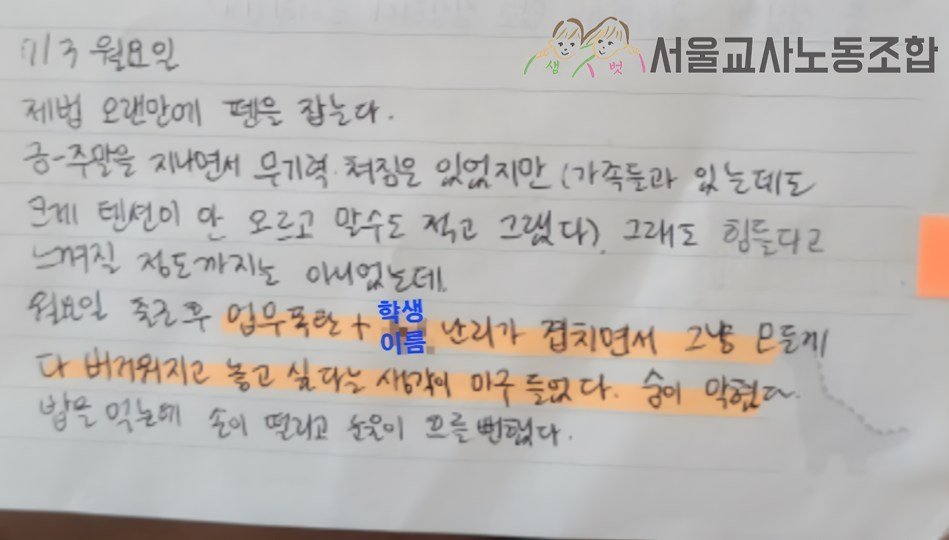 샘 벗 서울교사노동조합
7/3 월요일
제법 오랜만에 펜을 잡는다.
금-주말을 지나면서 무기력 처짐은 있었지만 (가족들과 있는데도
크게 텐션이 안 오르고 말수도 적고 그랬다). 그래도 힘들다고
느껴질 정도까지는 아니었는데.
월요일 출근 후 업무폭탄 + 학생 이름 난리가 겹치면서 그냥 모든게
다 버거워지고 놓고 싶다는 생각이 마구 들었다. 숨이 막혔다.
밥을 먹는데 손이 떨리고 눈물이 흐를 뻔했다.